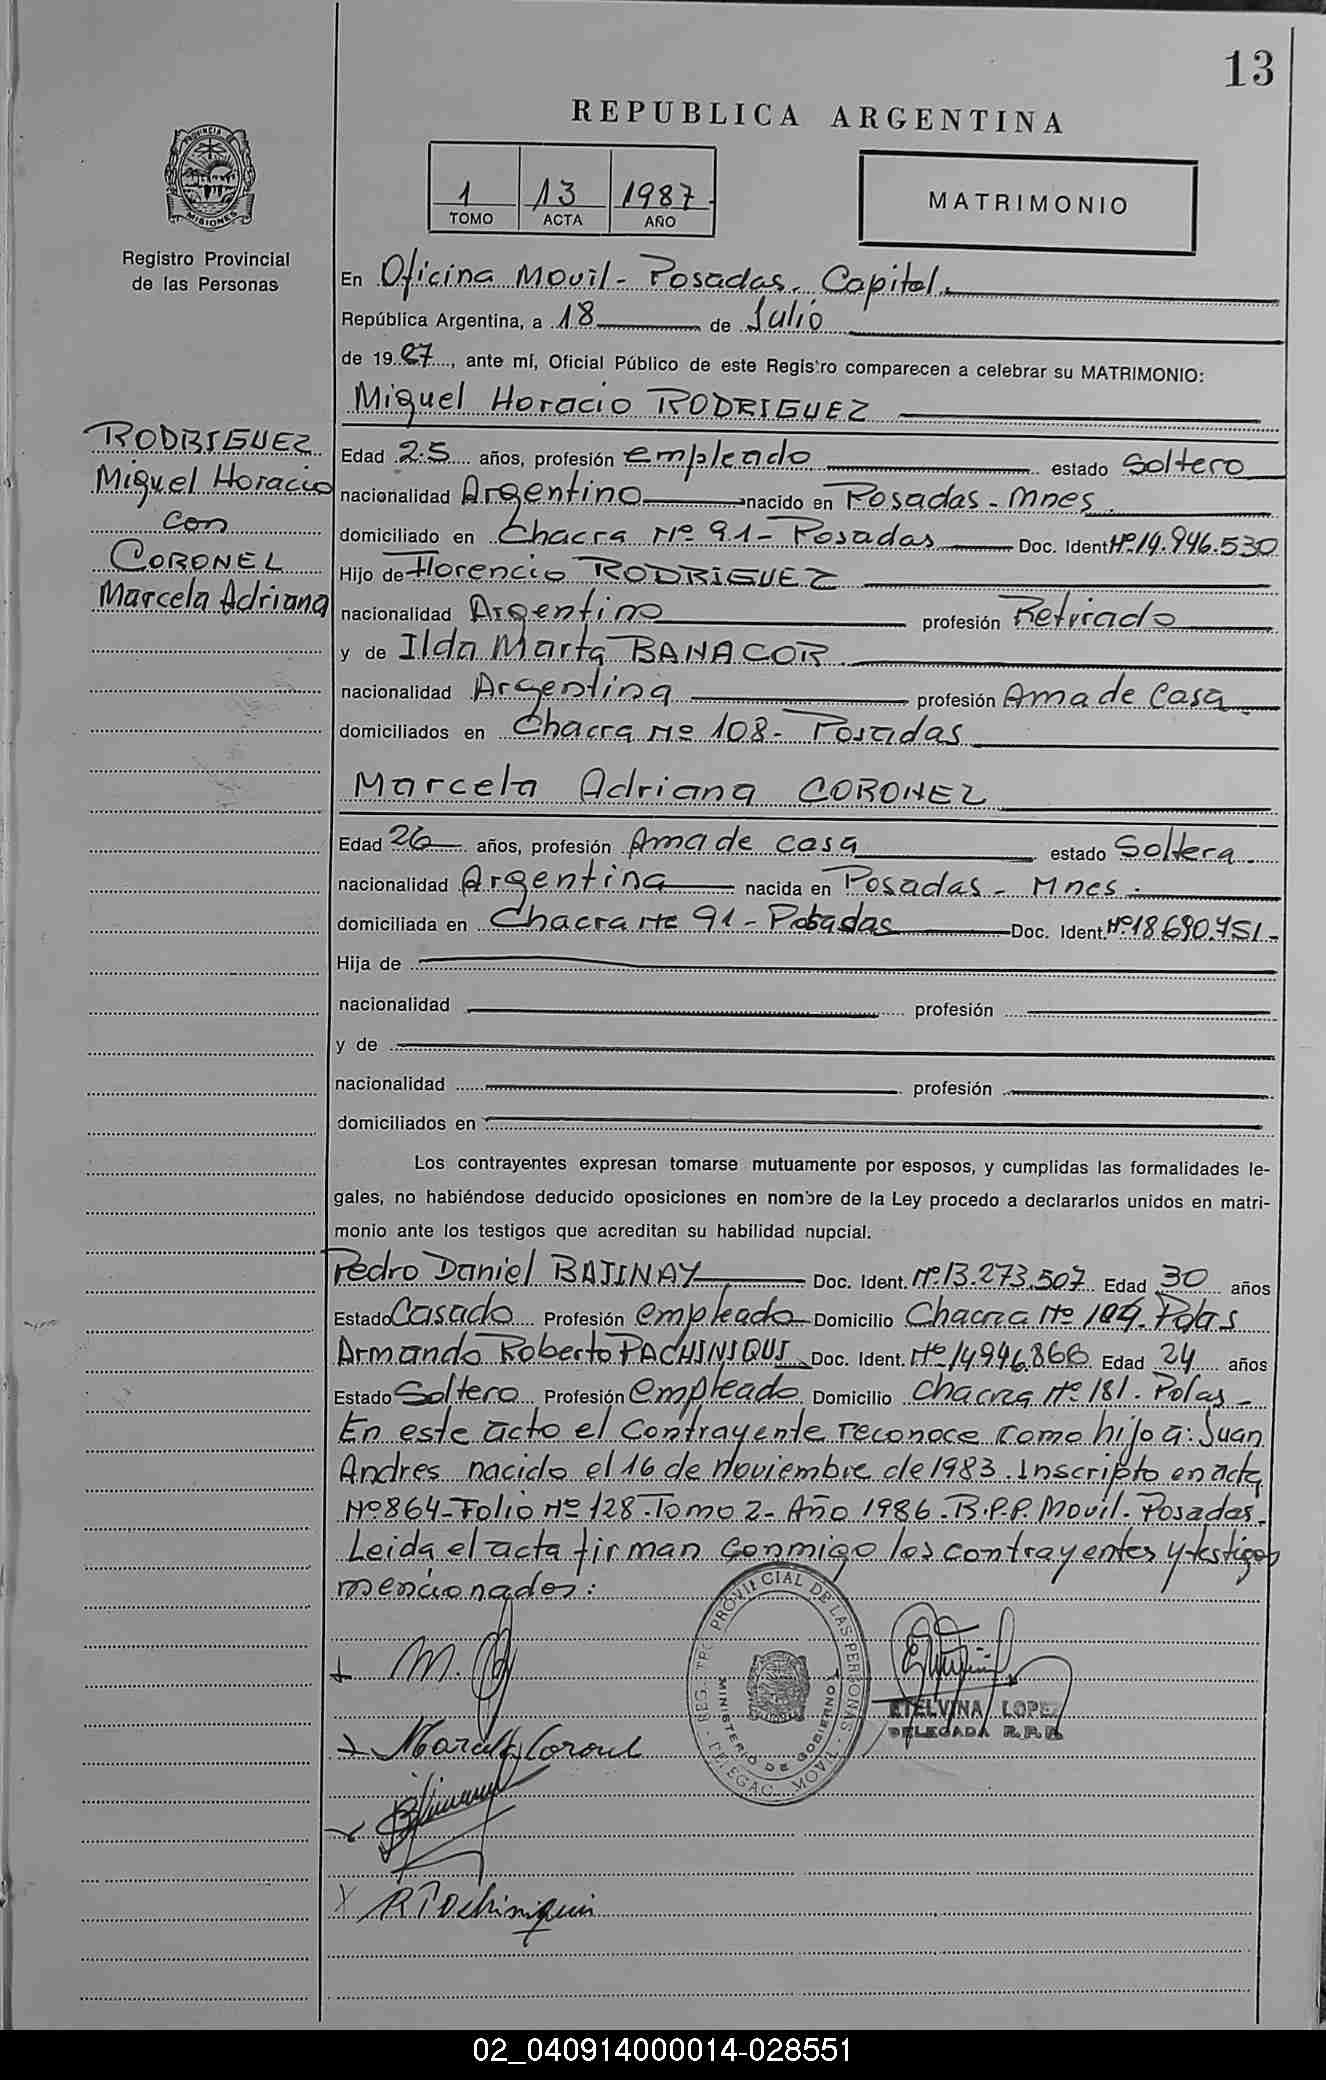 13
REPUBLICA ARGENTINA
1 13 1987
TOMO ACTA AÑO
MATRIMONIO
PROVINCIA DE
MISIONES
Registro Provincial
de las Personas
En Oficina Movil - Posadas. Capital.
República Argentina, a 18 de Julio
de 1987, ante mí, Oficial Público de este Registro comparecen a celebrar su MATRIMONIO:
Miguel Horacio RODRIGUEZ
RODRIGUEZ
Miguel Horacio
con
CORONEL
Marcela Adriana
Edad 25 años, profesión empleado estado Soltero
nacionalidad Argentino nacido en Posadas - Mnes.
domiciliado en Chacra Nº 91 - Posadas Doc. Ident. Nº 14.946.530
Hijo de Florencio RODRIGUEZ
nacionalidad Argentino profesión Retirado
y de Ilda Marta BANACOR
nacionalidad Argentina profesión Ama de Casa.
domiciliados en Chacra Nº 108 - Posadas
Marcela Adriana CORONEL
Edad 26 años, profesión Ama de casa estado Soltera.
nacionalidad Argentina nacida en Posadas - Mnes.
domiciliada en Chacra Nº 91 - Posadas Doc. Ident. Nº 18.690.751 -
Hija de
nacionalidad profesión
y de
nacionalidad profesión
domiciliados en
Los contrayentes expresan tomarse mutuamente por esposos, y cumplidas las formalidades le-
gales, no habiéndose deducido oposiciones en nombre de la Ley procedo a declararlos unidos en matri-
monio ante los testigos que acreditan su habilidad nupcial.
Pedro Daniel BAJINAY Doc. Ident. Nº 13.273.507 Edad 30 años
Estado Casado Profesión empleado Domicilio Chacra Nº Pdas
Armando Roberto PACHINIQUI Doc. Ident. Nº 14.946.866 Edad 24 años
Estado Soltero Profesión empleado Domicilio Chacra Nº 181. Pdas -
En este acto el Contrayente reconoce como hijo a: Juan
Andres nacido el 16 de Noviembre de 1983. Inscripto en acta
Nº 864 - Folio Nº 128 - Tomo 2 - Año 1986 - R.P.P. Movil - Posadas.
Leida el acta firman conmigo los contrayentes y testigos
mencionados:
REGISTRO PROVINCIAL DE LAS PERSONAS
MINISTERIO DE GOBIERNO
DELEGAC. MOVIL
ETELVINA LOPEZ
DELEGADA R.P.P.
Marcela Coronel
R Pachiniqui
02_040914000014-028551